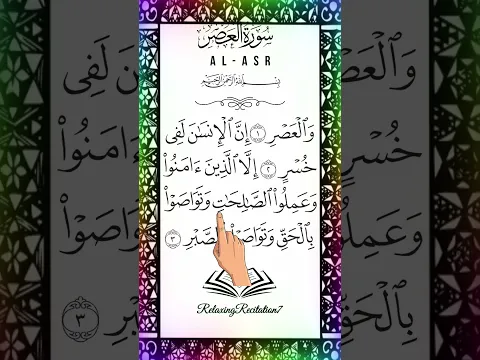 سُورَةُ العَصْرِ
AL-ASR
بِسْمِ ٱللَّهِ ٱلرَّحْمَٰنِ ٱلرَّحِيمِ
وَٱلْعَصْرِ ١ إِنَّ ٱلْإِنسَٰنَ لَفِى
خُسْرٍ ٢ إِلَّا ٱلَّذِينَ ءَامَنُوا۟
وَعَمِلُوا۟ ٱلصَّٰلِحَٰتِ وَتَوَاصَوْا۟
بِٱلْحَقِّ وَتَوَاصَوْا۟ بِٱلصَّبْرِ ٣
RelaxingRecitation7